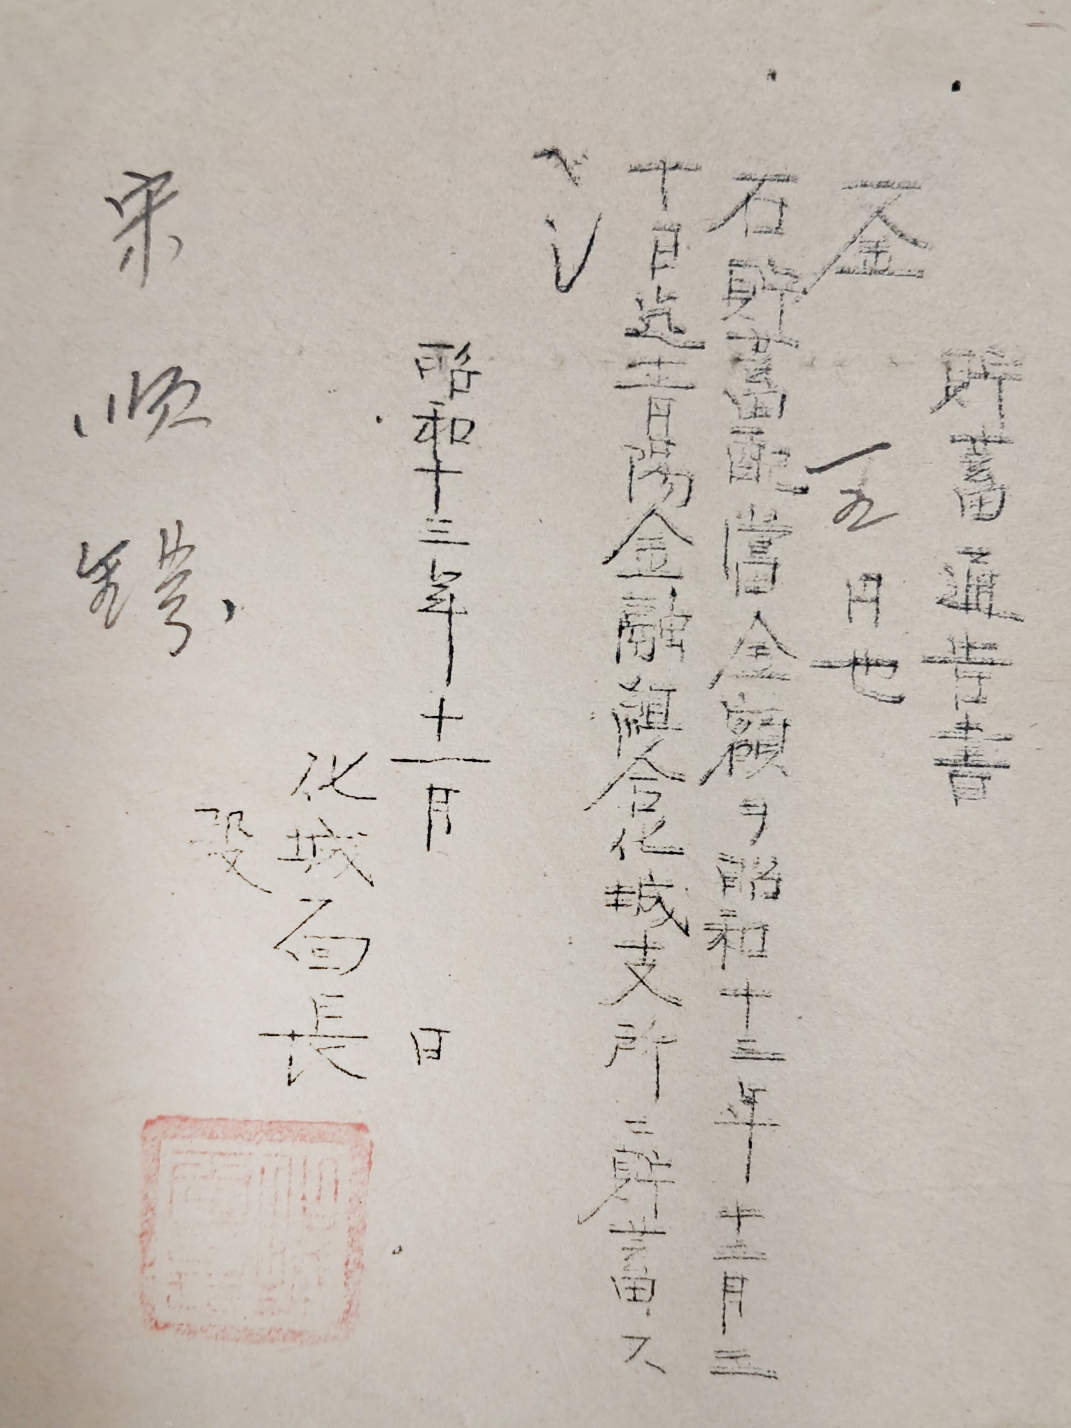 貯蓄通告書
金 五円也
右貯蓄配當金額ヲ昭和十三年十二月二
十日迄青陽金融組合化城支所ニ貯蓄ス
ベシ
昭和十三年十一月 日
化城面長
殿
宋順